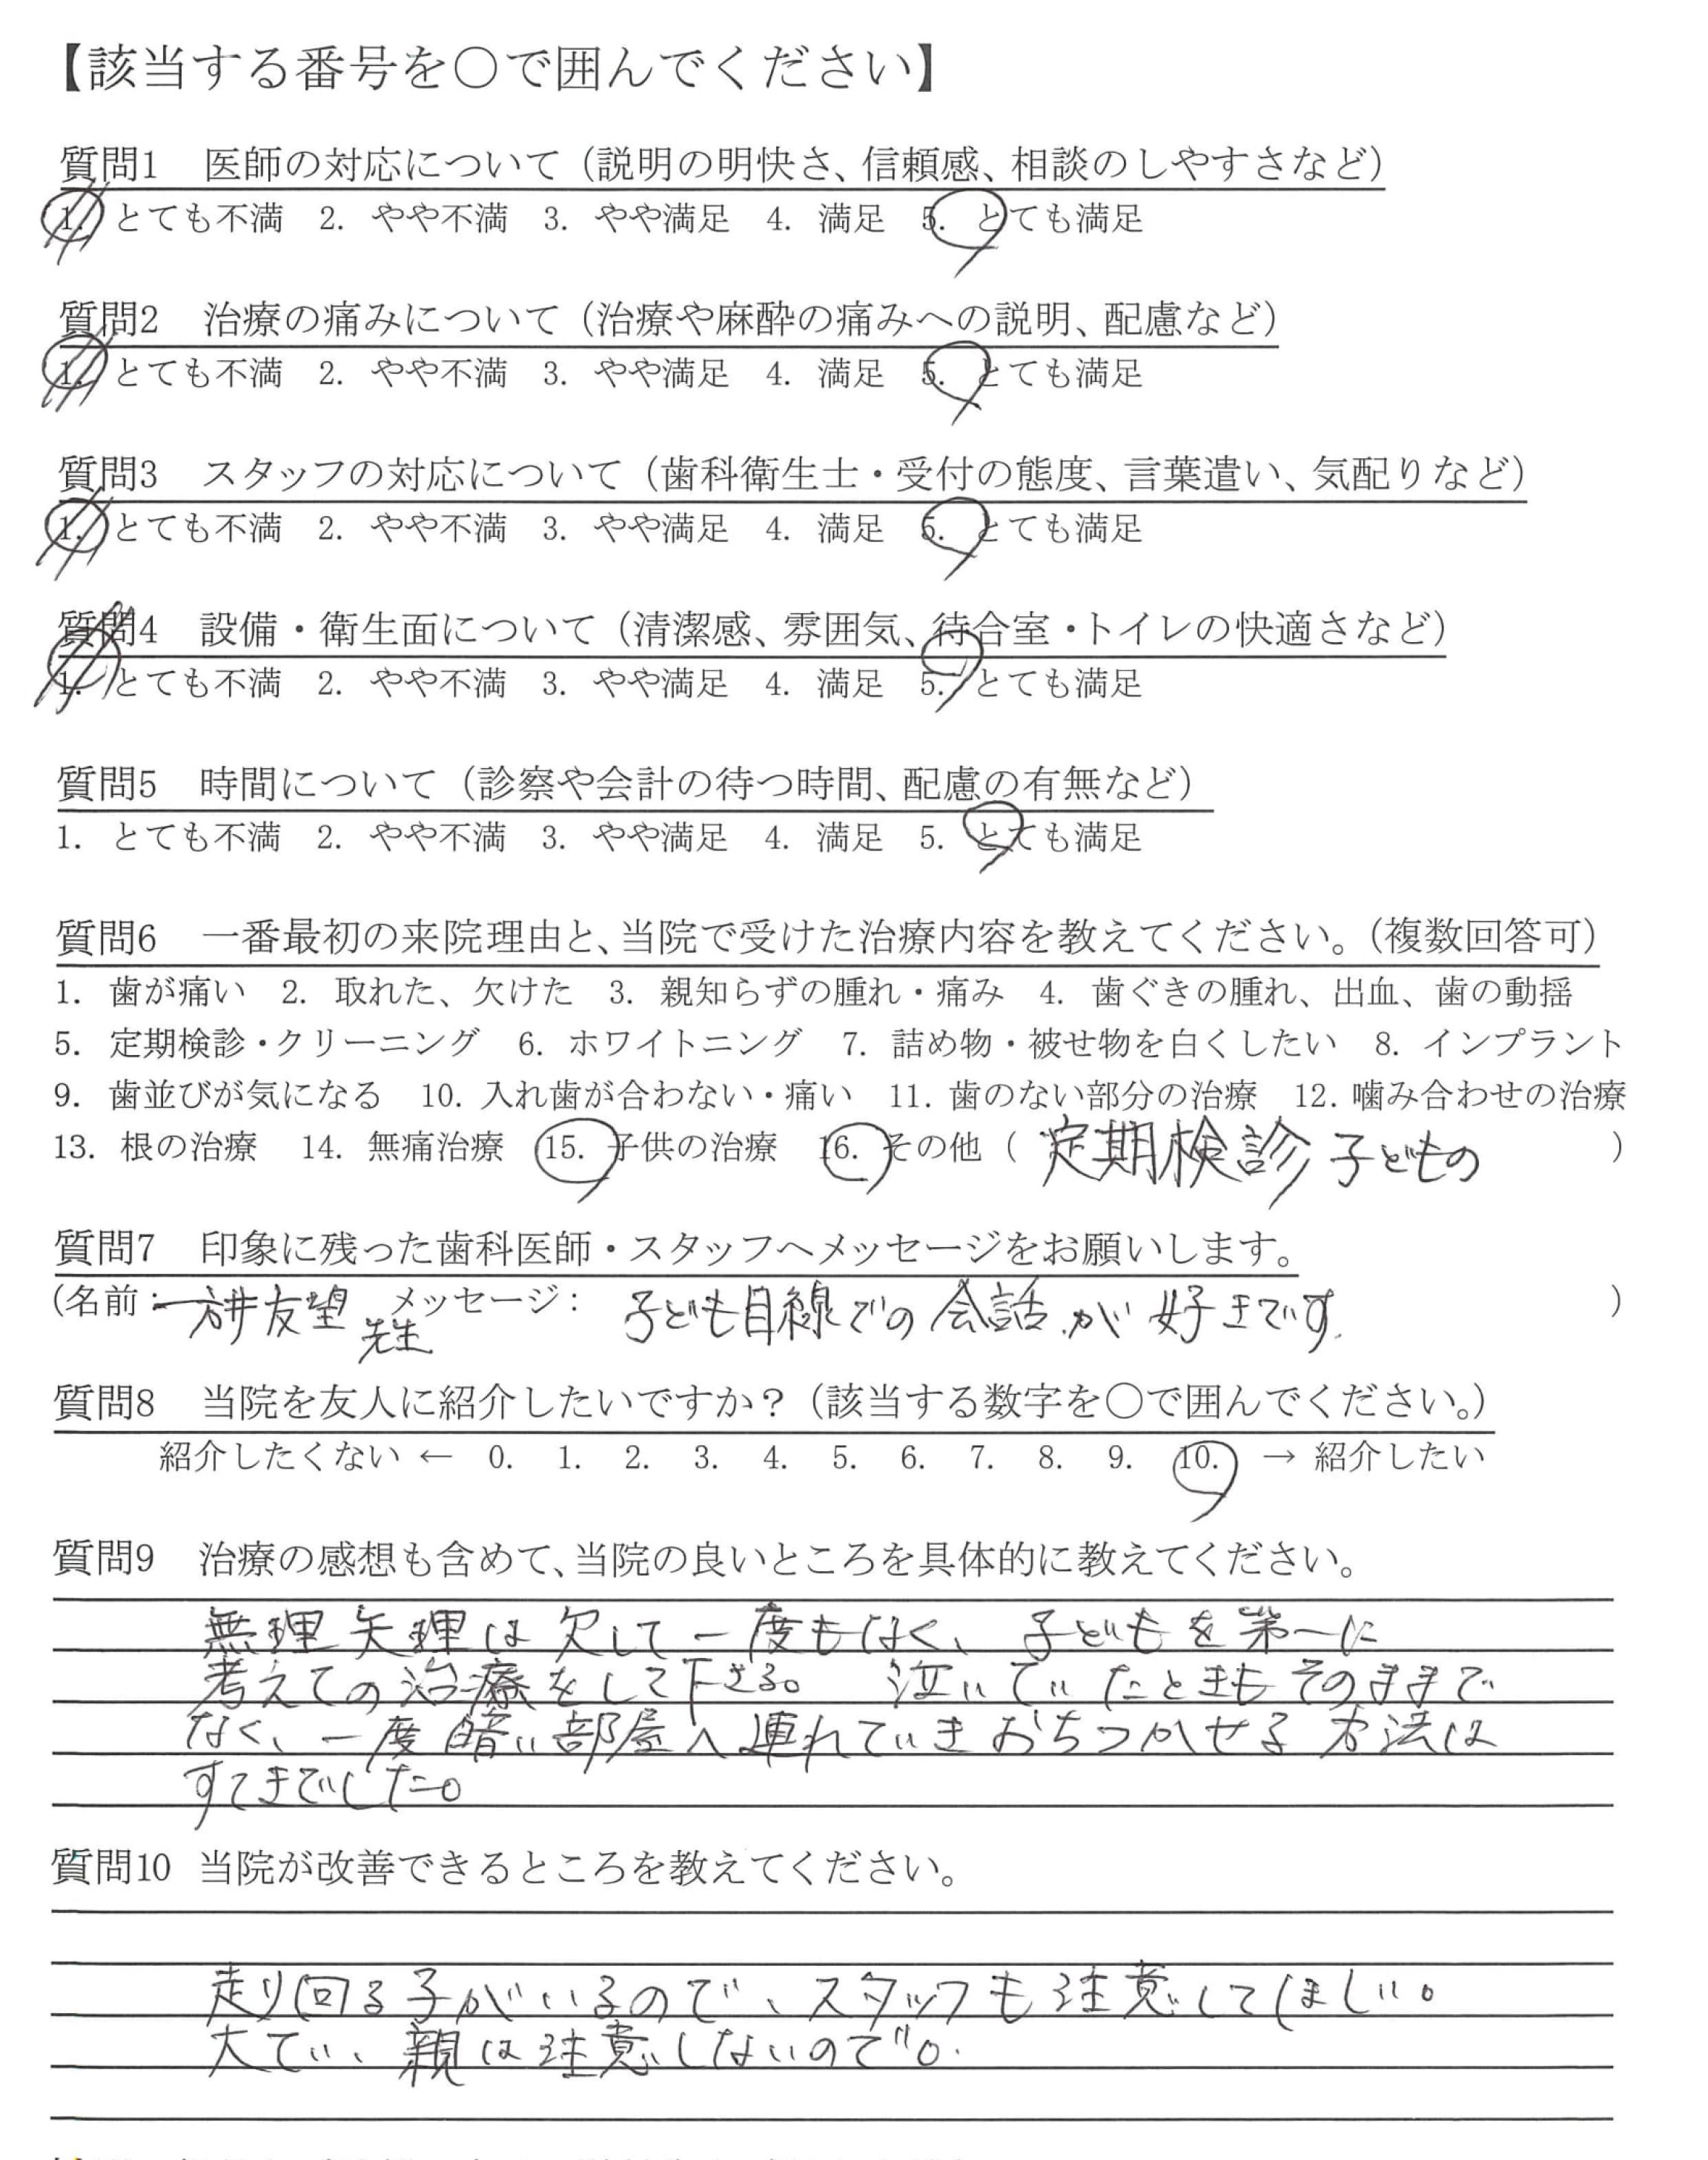 【該当する番号を○で囲んでください】
質問1 医師の対応について（説明の明快さ、信頼感、相談のしやすさなど）
1. とても不満 2. やや不満 3. やや満足 4. 満足 5. とても満足
質問2 治療の痛みについて（治療や麻酔の痛みへの説明、配慮など）
1. とても不満 2. やや不満 3. やや満足 4. 満足 5. とても満足
質問3 スタッフの対応について（歯科衛生士・受付の態度、言葉遣い、気配りなど）
1. とても不満 2. やや不満 3. やや満足 4. 満足 5. とても満足
質問4 設備・衛生面について（清潔感、雰囲気、待合室・トイレの快適さなど）
1. とても不満 2. やや不満 3. やや満足 4. 満足 5. とても満足
質問5 時間について（診察や会計の待つ時間、配慮の有無など）
1. とても不満 2. やや不満 3. やや満足 4. 満足 5. とても満足
質問6 一番最初の来院理由と、当院で受けた治療内容を教えてください。（複数回答可）
1. 歯が痛い 2. 取れた、欠けた 3. 親知らずの腫れ・痛み 4. 歯ぐきの腫れ、出血、歯の動揺
5. 定期検診・クリーニング 6. ホワイトニング 7. 詰め物・被せ物を白くしたい 8. インプラント
9. 歯並びが気になる 10. 入れ歯が合わない・痛い 11. 歯のない部分の治療 12. 噛み合わせの治療
13. 根の治療 14. 無痛治療 15. 子供の治療 16. その他（ 定期検診 子どもの ）
質問7 印象に残った歯科医師・スタッフへメッセージをお願いします。
（名前： 友望 先生 メッセージ： 子ども目線での会話が好きです ）
質問8 当院を友人に紹介したいですか？（該当する数字を○で囲んでください。）
紹介したくない ← 0. 1. 2. 3. 4. 5. 6. 7. 8. 9. 10. → 紹介したい
質問9 治療の感想も含めて、当院の良いところを具体的に教えてください。
無理矢理は欠して一度もなく、子どもを第一に
考えての治療をして下さる。 泣いていたときもそのままで
なく、一度暗い部屋へ連れていきおちつかせる方法は
すてきでした。
質問10 当院が改善できるところを教えてください。
走り回る子がいるので、スタッフも注意してほしい。
大てい、親は注意しないので。